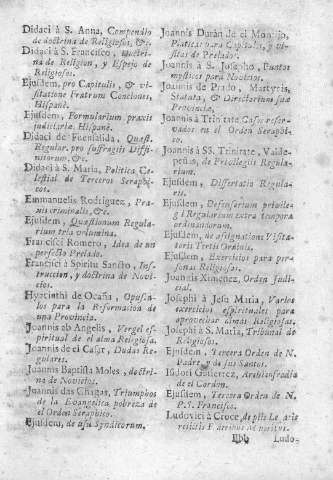 Didaci à S. Anna, Compendio
de doctrina de Religiosos, &c.
Didaci à S. Francisco, doctri-
na de Religion, y Espejo de
Religiosos.
Ejusdem, pro Capitulis, & vi-
sitatione Fratrum Conciones,
Hispanè.
Ejusdem, Formularium praxis
judiciariæ Hispanè.
Didaci de Fuensalida, Quæst.
Regular. pro suffragiis Diffi-
nitorum, &c.
Didaci à S. Maria, Politica Ce-
lestial de Terceros Seraphi-
cos.
Emmanuelis Rodriguez, Pra-
xis criminalis, &c.
Ejusdem, Quæstionum Regula-
rium tria volumina.
Francisci Romero, Idea de un
perfecto Prelado.
Francisci à Spiritu Sancto, Ins-
truccion, y doctrina de Novi-
cios.
Hyacinthi de Ocaña, Opuscu-
los para la Reformacion de
una Provincia.
Joannis ab Angelis, Vergel es-
piritual de el alma Religiosa.
Joannis de el Casar, Dudas Re-
gulares.
Joannis Baptista Moles, doctri-
na de Novicios.
Joannis das Chagas, Triumphos
de la Evangelica pobreza de
el Orden Seraphico.
Ejusdem, de usu Syndicorum.
Joannis Duràn de el Montijo,
Platicas para Capitulos, y Vi-
sitas de Prelados.
Joannis à S. Josepho, Puntos
mysticos para Novicios.
Joannis de Prado, Martyris,
Statuta, & Directorium suæ
Provinciæ.
Joannis à Trinitate Casos reser-
vados en el Orden Seraphi-
co.
Joannis à SS. Trinitate, Valde-
peñas, de Privilegiis Regula-
rium.
Ejusdem, Dissertatio Regula-
ris.
Ejusdem, Defensorium privile-
gii Regularium extra tempora
ordinandorum.
Ejusdem, de assignatione Visita-
toris Tertii Ordinis.
Ejusdem, Exercicios para per-
sonas Religiosas.
Joannis Ximenez, Orden Judi-
cial.
Josephi à Jesu Maria, Varios
exercicios espirituales para
aprovechar almas Religiosas.
Josephi à S. Maria, Tribunal de
Religiosos.
Ejusdem, Tercera Orden de N.
Padre, y de sus Santos.
Isidori Gutierrez, Archicofradia
de el Cordon.
Ejusdem, Tercera Orden de N.
P. S. Francisco.
Ludovici à Cruce, de
Fratribus
Bbb Ludo-